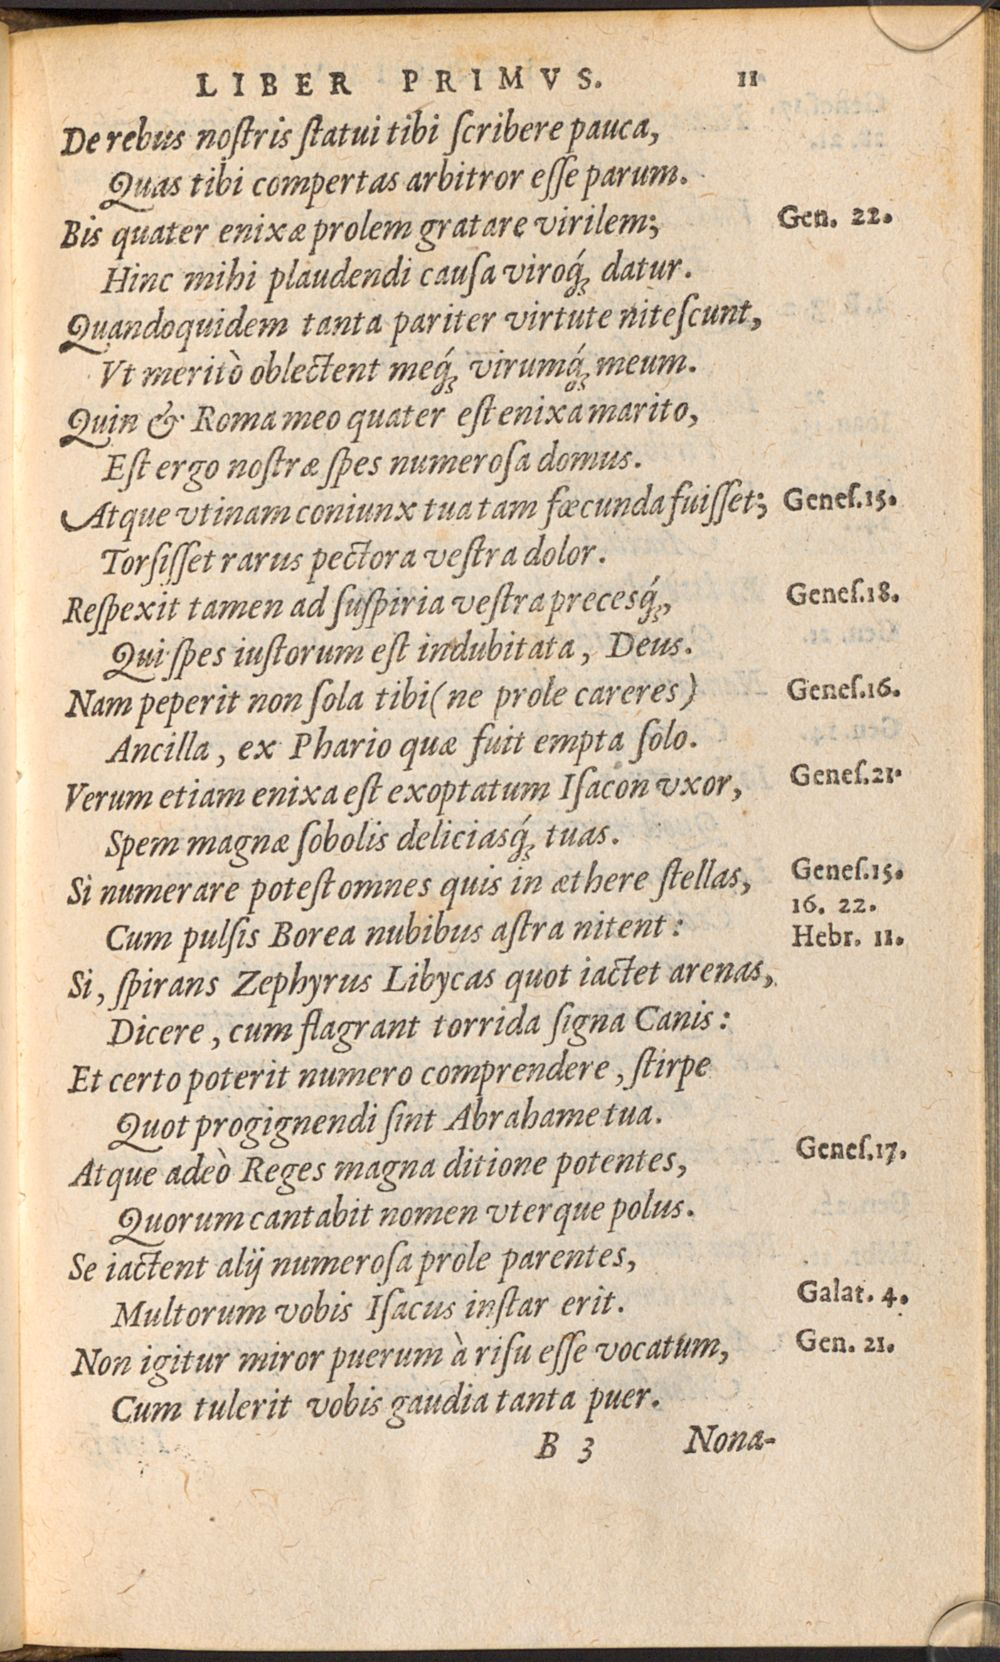 LIBER PRIMVS. 11
De rebus noſtris ſtatui tibi ſcribere pauca,
Quas tibi compertas arbitror eſſe parum.
Bis quater enixæ prolem gratare virilem; Gen. 22.
Hinc mihi plaudendi cauſa viroq́; datur.
Quandoquidem tanta pariter virtute niteſcunt,
Vt meritò oblectent meq́; virumq́; meum.
Quin & Roma meo quater eſt enixa marito,
Eſt ergo noſtræ ſpes numeroſa domus.
Atque vtinam coniunx tua tam fœcunda fuiſſet; Geneſ.15.
Torſiſſet rarus pectora veſtra dolor.
Reſpexit tamen ad ſuſpiria veſtra precesq́;, Geneſ.18.
Qui ſpes iuſtorum eſt indubitata, Deus.
Nam peperit non ſola tibi (ne prole careres) Geneſ.16.
Ancilla, ex Phario quæ fuit empta ſolo.
Verum etiam enixa eſt exoptatum Iſacon vxor, Geneſ.21.
Spem magnæ ſobolis deliciasq́; tuas.
Si numerare poteſt omnes quis in æthere ſtellas, Geneſ.15.
16. 22.
Cum pulſis Borea nubibus aſtra nitent: Hebr. 11.
Si, ſpirans Zephyrus Libycas quot iactet arenas,
Dicere, cum flagrant torrida ſigna Canis:
Et certo poterit numero comprendere, ſtirpe
Quot progignendi ſint Abrahame tua.
Atque adeò Reges magna ditione potentes, Geneſ.17.
Quorum cantabit nomen vterque polus.
Se iactent alij numeroſa prole parentes,
Multorum vobis Iſacus inſtar erit. Galat. 4.
Non igitur miror puerum à riſu eſſe vocatum, Gen. 21.
Cum tulerit vobis gaudia tanta puer.
B 3 Nona-